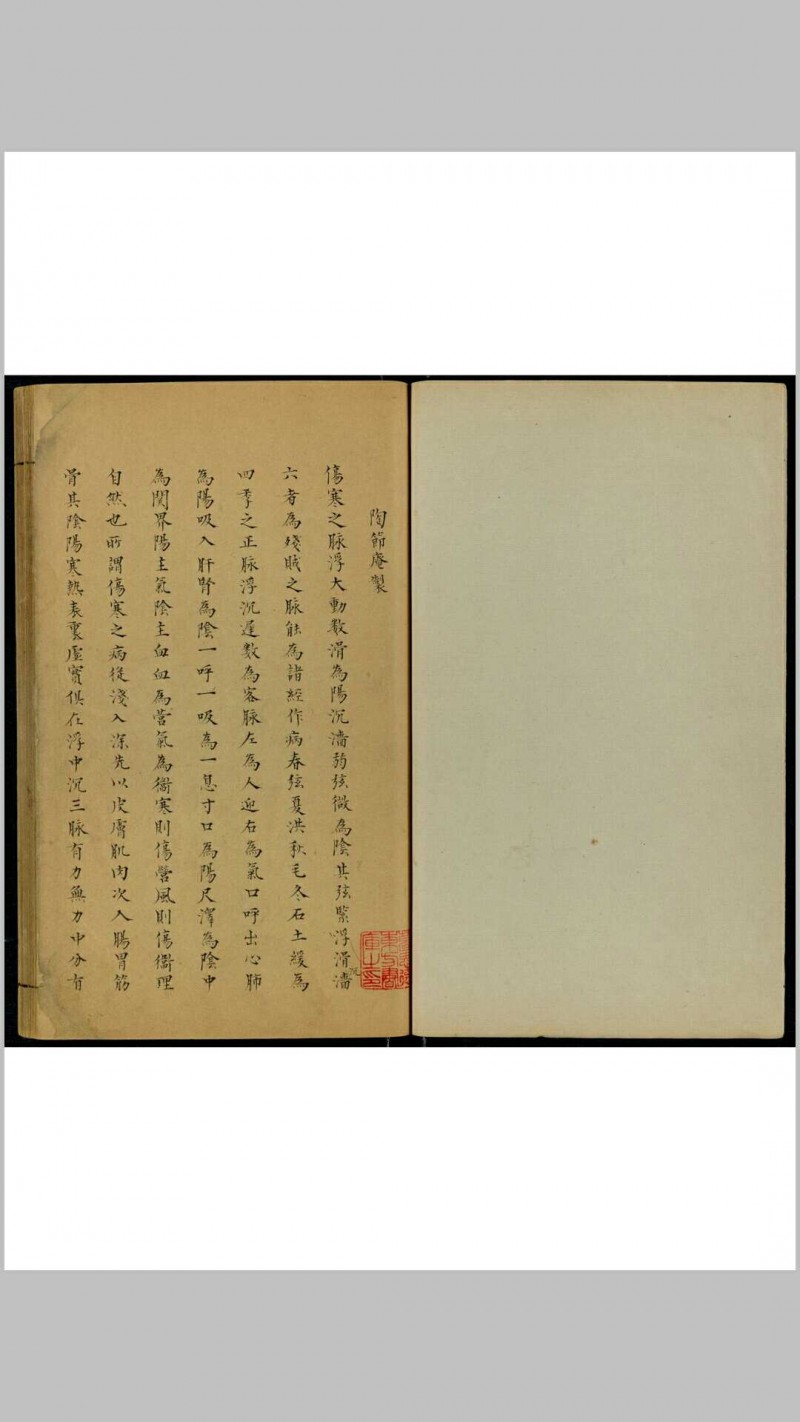 陶節庵製
傷寒之脉浮大動數滑為陽沉濇弱弦微為陰其弦緊浮滑沉濇
六者為殘賊之脉能為諸經作病春弦夏洪秋毛冬石土緩為
四季之正脉浮沉遲數為客脉左為人迎右為氣口呼出心肺
為陽吸入肝腎為陰一呼一吸為一息寸口為陽尺澤為陰中
為関界陽主氣陰主血血為營氣為衛寒則傷營風則傷衛理
自然也所謂傷寒之病從淺入深先以皮膚肌肉次入腸胃筋
骨其陰陽寒熱表裏虛實俱在浮中沉三脉有力無力中分有